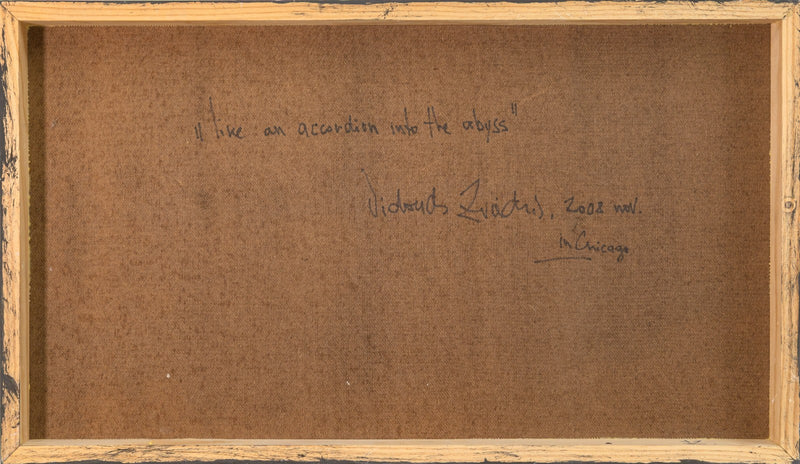 „like an accordion into the abyss"
Vidvuds Zviedris, 2008 nov.
in Chicago